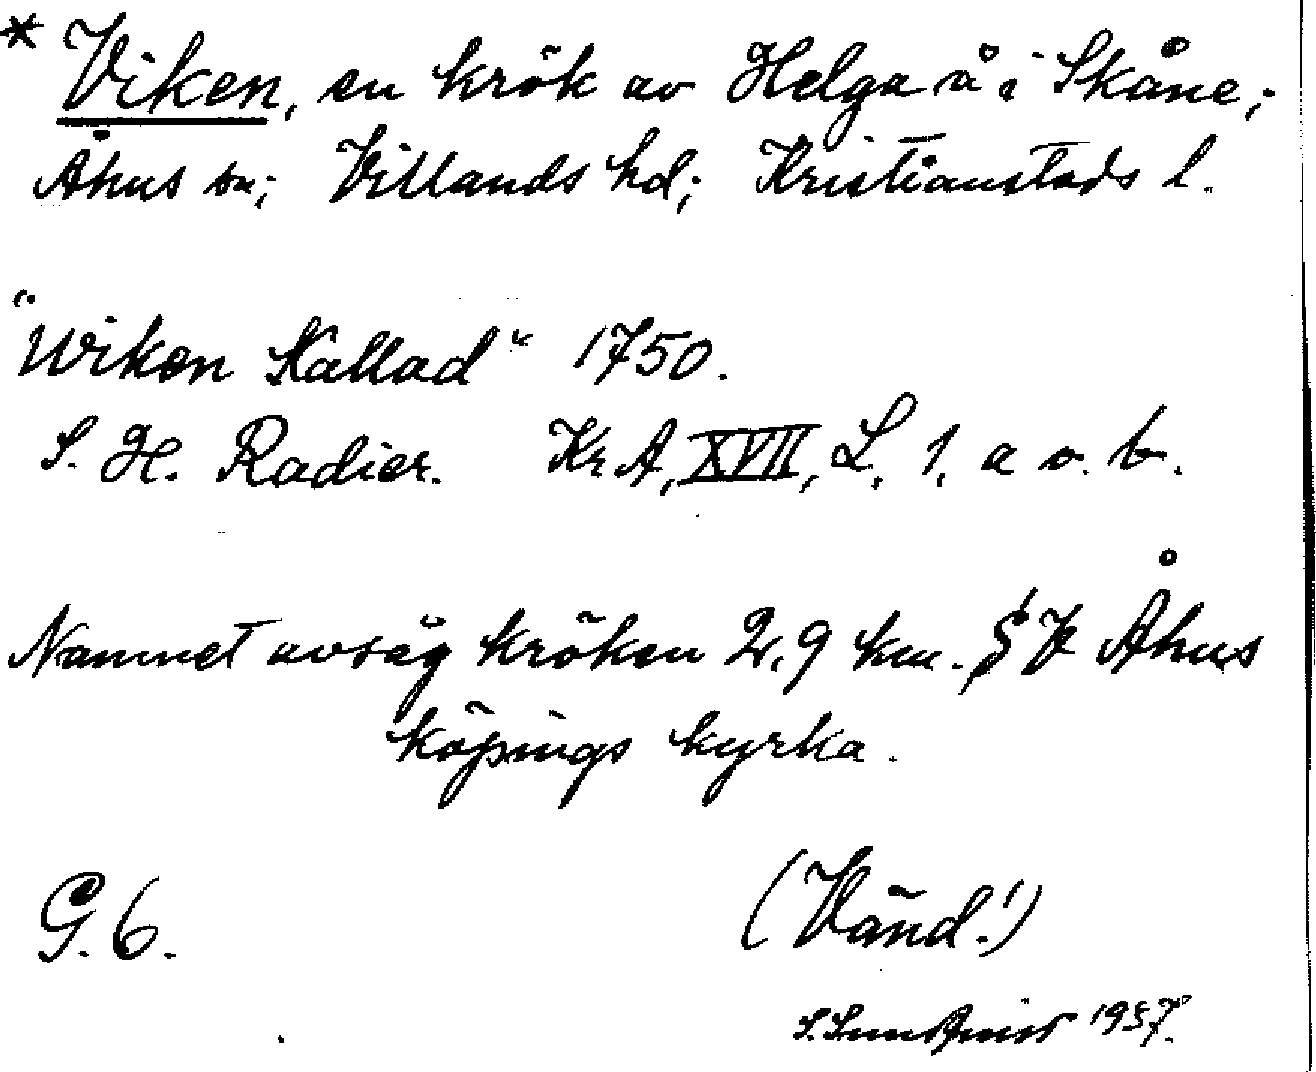 * Viken, en krök av Helga å i Skåne;
Åhus sn; Villands hd; Kristianstads l.
"Wiken Kallad" 1750.
S. H. Radier. Kr A, XVII, L, 1, a o. b.
Namnet avsåg kröken 2,9 km. Åhus
köpings kyrka.
G. 6.
(Vänd!)
S. Sundqvist 1957.